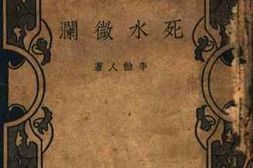 死水微瀾
李劼人著